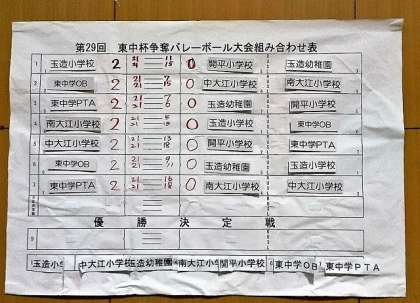 第29回 東中杯争奪バレーボール大会組み合わせ表
1 玉造小学校 2 21 21 11 15 0 開平小学校 玉造幼稚園
2 東中学OB 2 21 21 7 15 0 中大江小学校 南大江小学校
3 東中学PTA 2 21 21 7 6 0 玉造幼稚園 開平小学校
4 南大江小学校 2 21 21 0 玉造小学校 東中学OB
5 中大江小学校 2 21 21 13 18 0 開平小学校 東中学PTA
6 東中学OB 2 21 21 9 11 0 玉造幼稚園 玉造小学校
7 東中学PTA 2 21 21 16 18 0 南大江小学校 中大江小学校
優勝決定戦
玉造小学 中大江小学校 玉造幼稚園 南大江小学校 開平小学校 東中学OB 東中学PTA